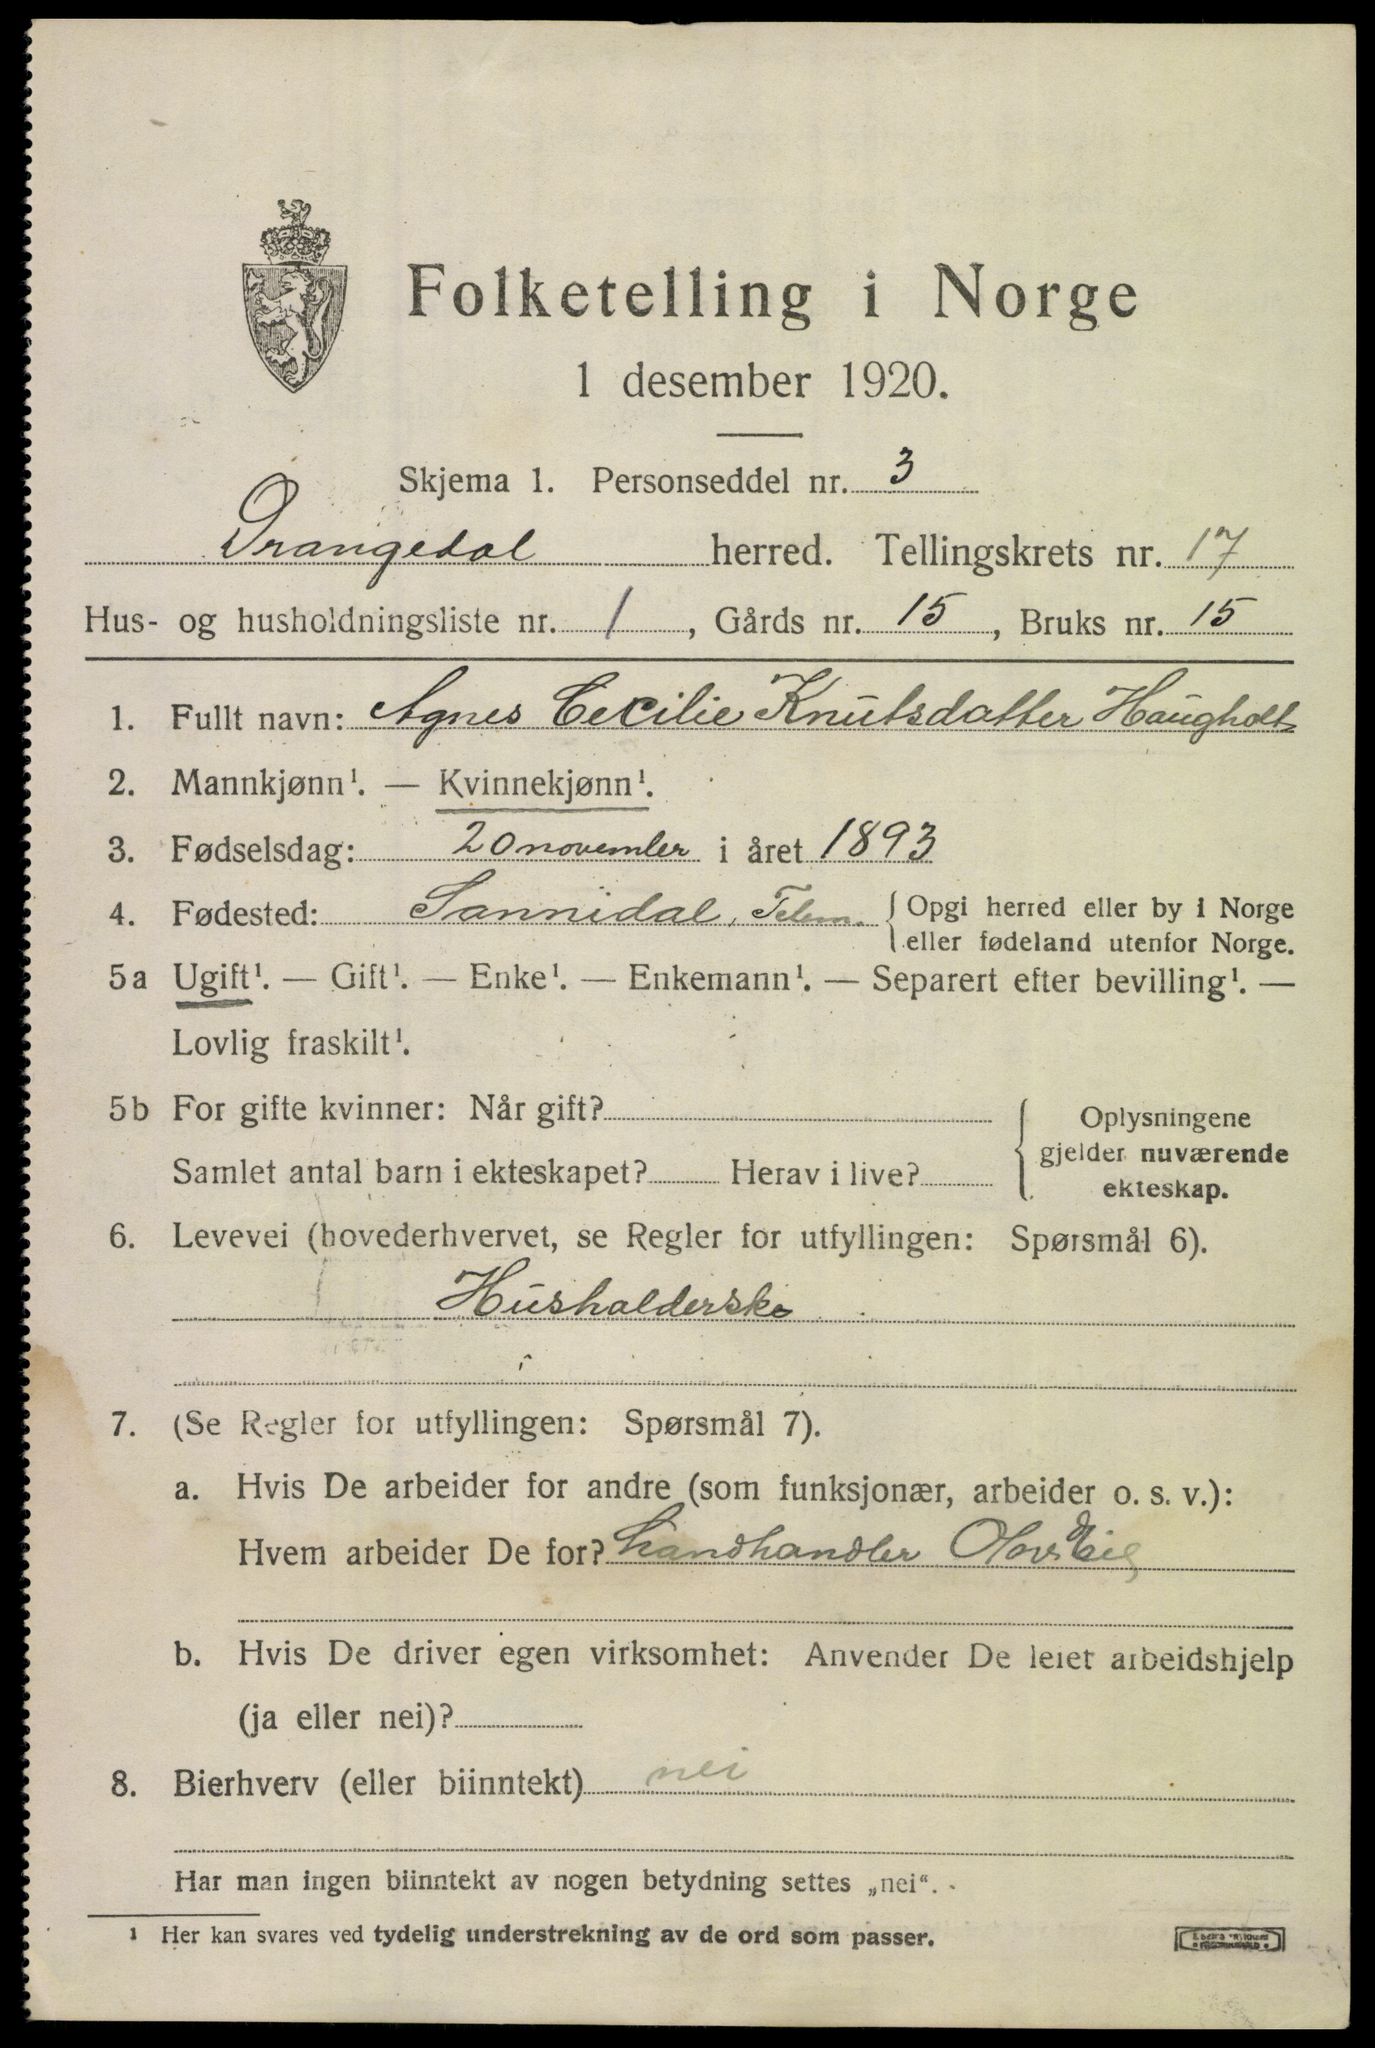 Folketelling i Norge
1 desember 1920.
Skjema 1. Personseddel nr. 3
Drangedal herred. Tellingskrets nr. 17
Hus- og husholdningsliste nr. 1, Gårds nr. 15, Bruks nr. 15
1. Fullt navn: Agnes Cecilie Knutsdatter Haugholt
2. Mannkjønn¹. — Kvinnekjønn¹.
3. Fødselsdag: 20 november i året 1893
4. Fødested: Sannidal, Telem. { Opgi herred eller by i Norge
eller fødeland utenfor Norge.
5a Ugift¹. — Gift¹. — Enke¹. — Enkemann¹. — Separert efter bevilling¹. —
Lovlig fraskilt¹.
5b For gifte kvinner: Når gift?
Samlet antal barn i ekteskapet? Herav i live?
{ Oplysningene
gjelder nuværende
ekteskap.
6. Levevei (hovederhvervet, se Regler for utfyllingen: Spørsmål 6).
Husholderske
7. (Se Regler for utfyllingen: Spørsmål 7).
a. Hvis De arbeider for andre (som funksjonær, arbeider o. s. v.):
Hvem arbeider De for? Landhandler
b. Hvis De driver egen virksomhet: Anvender De leiet arbeidshjelp
(ja eller nei)?
8. Bierhverv (eller biinntekt) nei
Har man ingen biinntekt av nogen betydning settes „nei“.
¹ Her kan svares ved tydelig understrekning av de ord som passer.